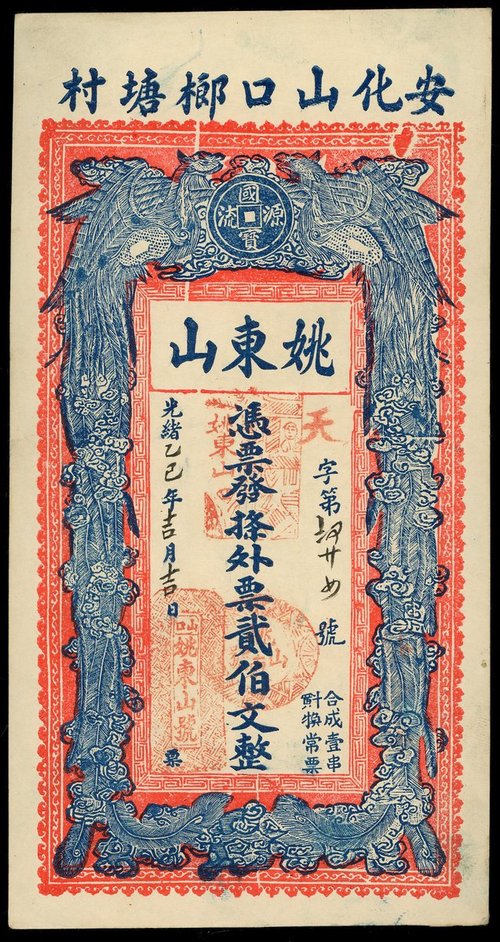 安化山口榔塘村
國寶源流
姚東山
天
字第 廿 號
合成壹串
斢換常票
憑票發條外票貳伯文整
光緒乙巳年吉月吉日
票
姚東山號